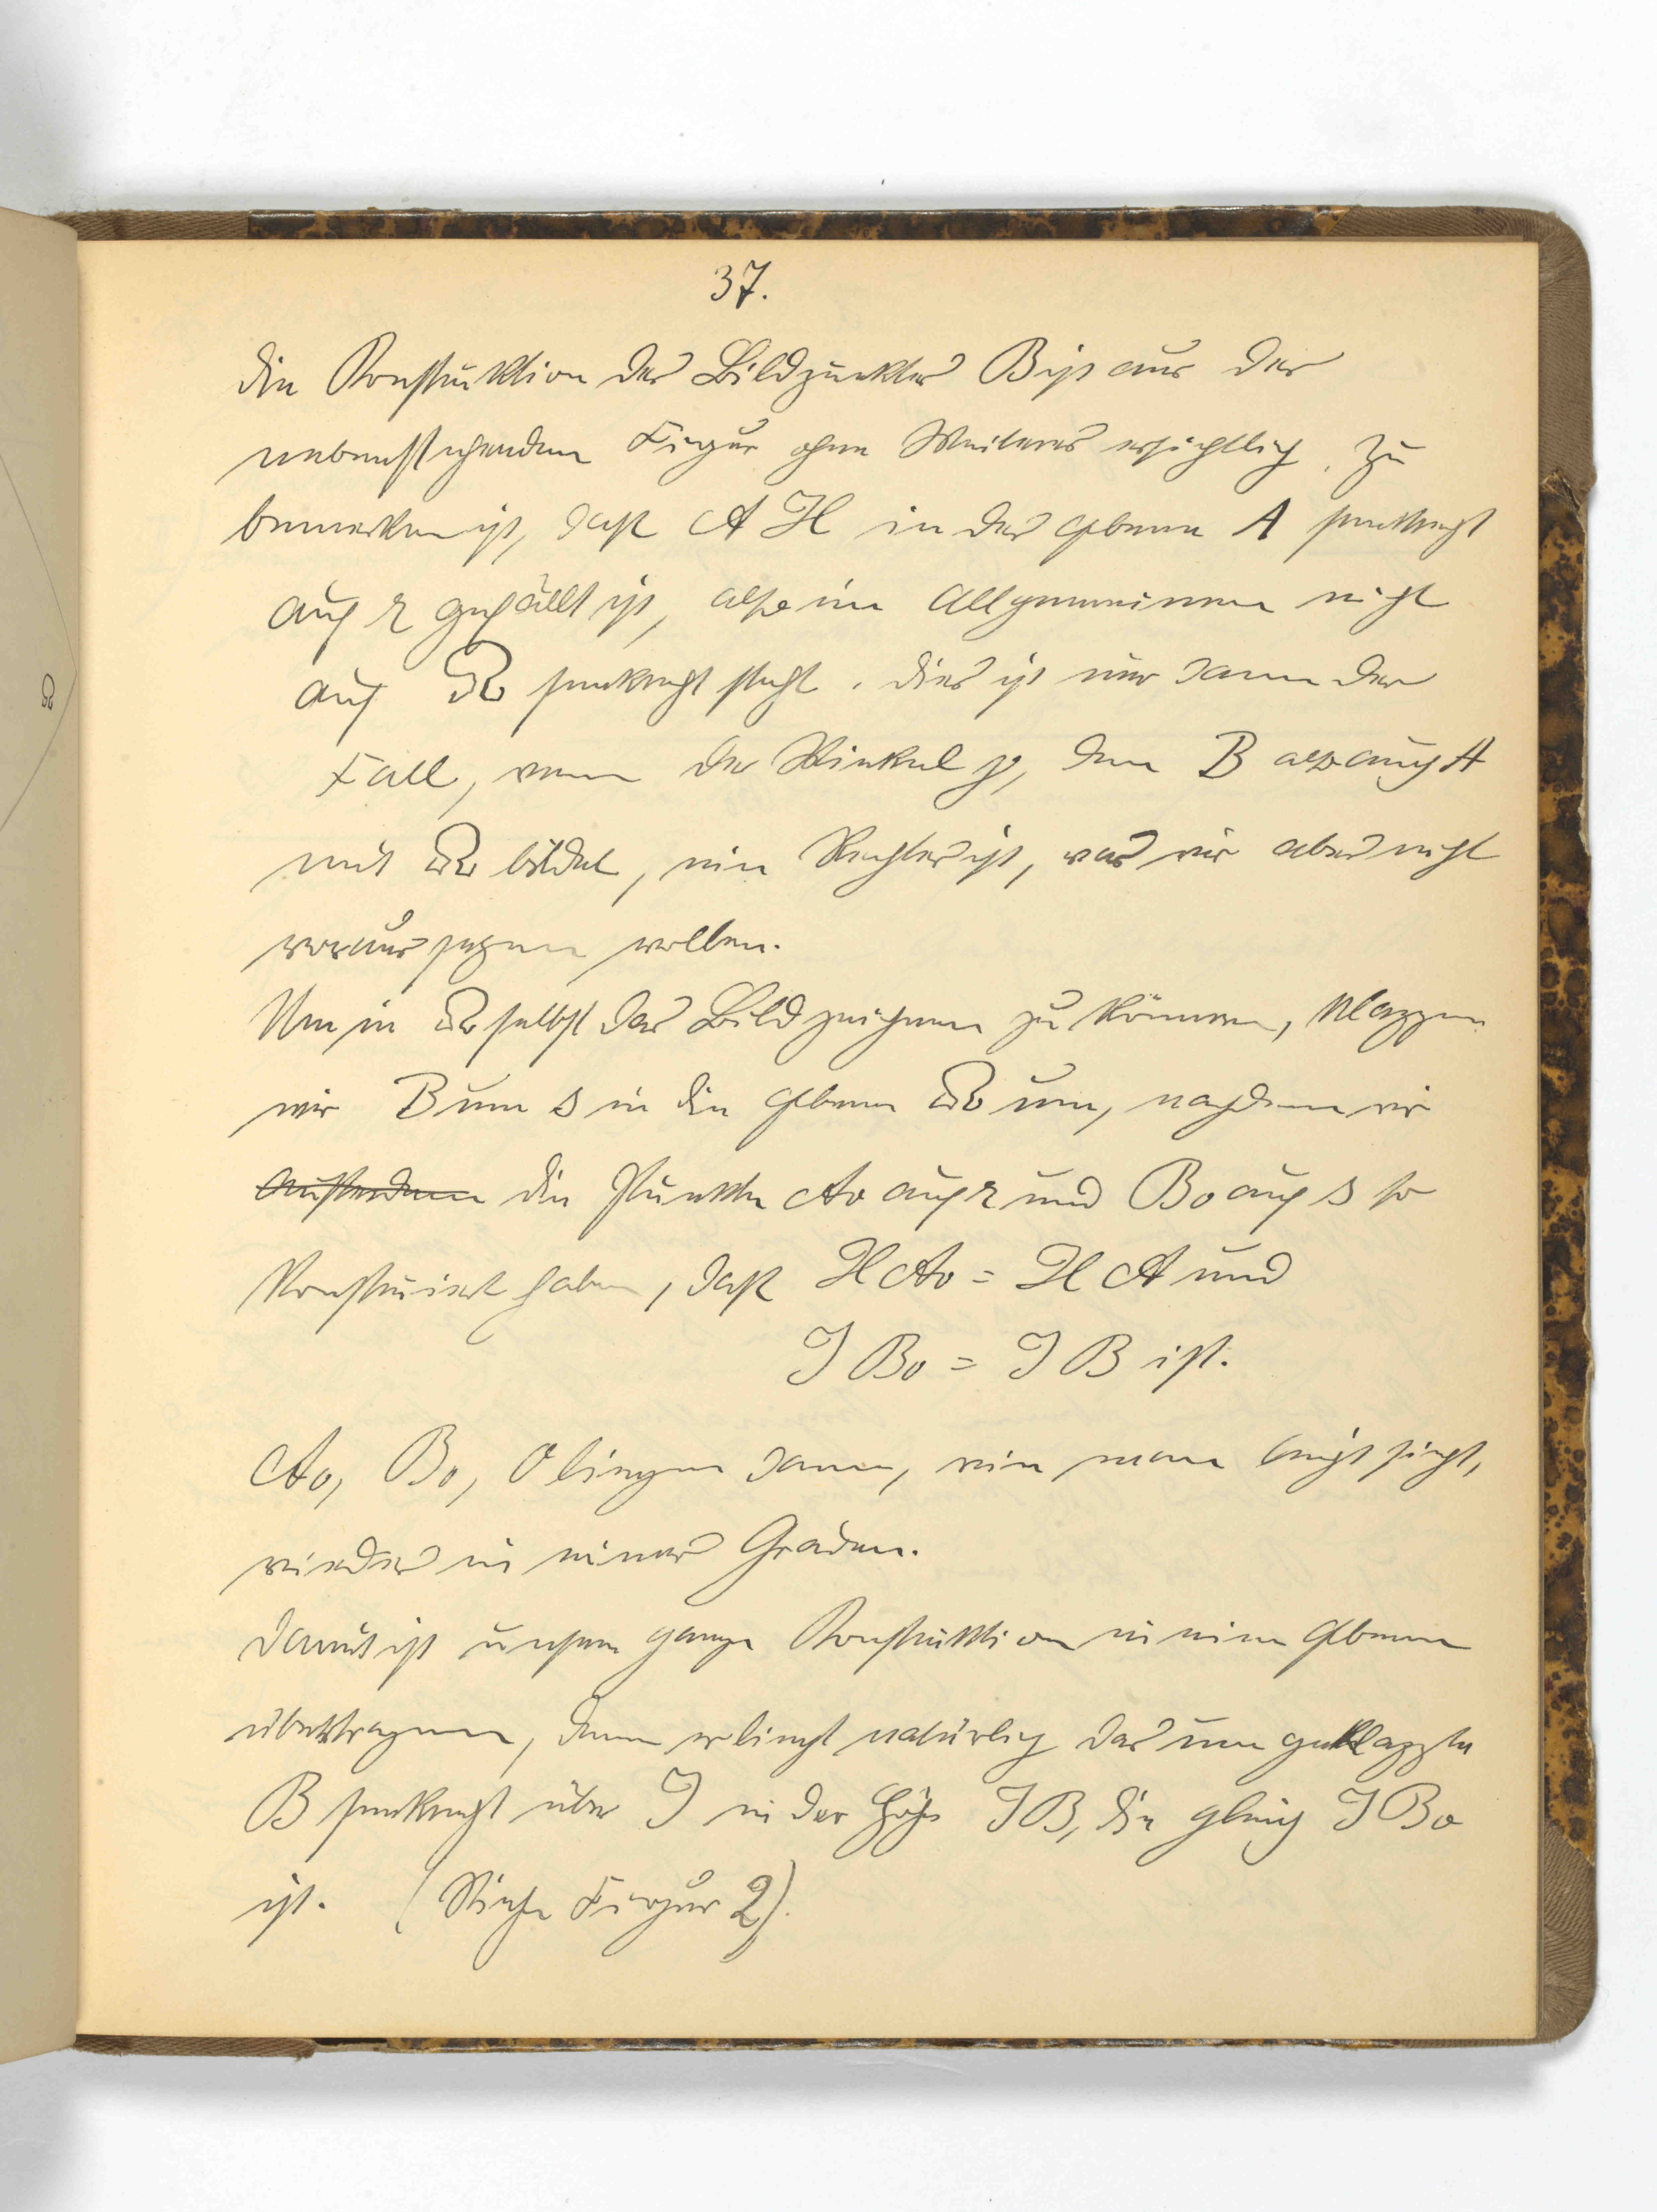 37.
Die Konstruktion des Bildpunktes B ist aus der
nebenstehenden Figur ohne Weiteres ersichtlich. Zu
bemerken ist, daß A H in der Ebene A senkrecht
auf r gefällt ist, also im Allgemeinen nicht
auf senkrecht steht. Dies ist nur dann der
Fall, wenn der Winkel φ, den B also auch A
mit bildet, ein Rechter ist, was wir aber nicht
voraussetzen wollen.
Um in selbst das Bild zeichnen zu können, klappen
wir B um s in die Ebene um, nachdem wir
die Punkte A₀ auf r und B₀ auf s so
konstruiert haben, daß H A₀ = H A und
J B₀ = J B ist.
A₀, B₀, O liegen dann, wie man leicht sieht,
wieder in einer Graden.
Damit ist unsere ganze Konstruktion in eine Ebene
übertragen, denn es liegt natürlich das um geklappte
B senkrecht über J in der Höhe J B, die gleich J B₀
ist. (Siehe Figur 2).